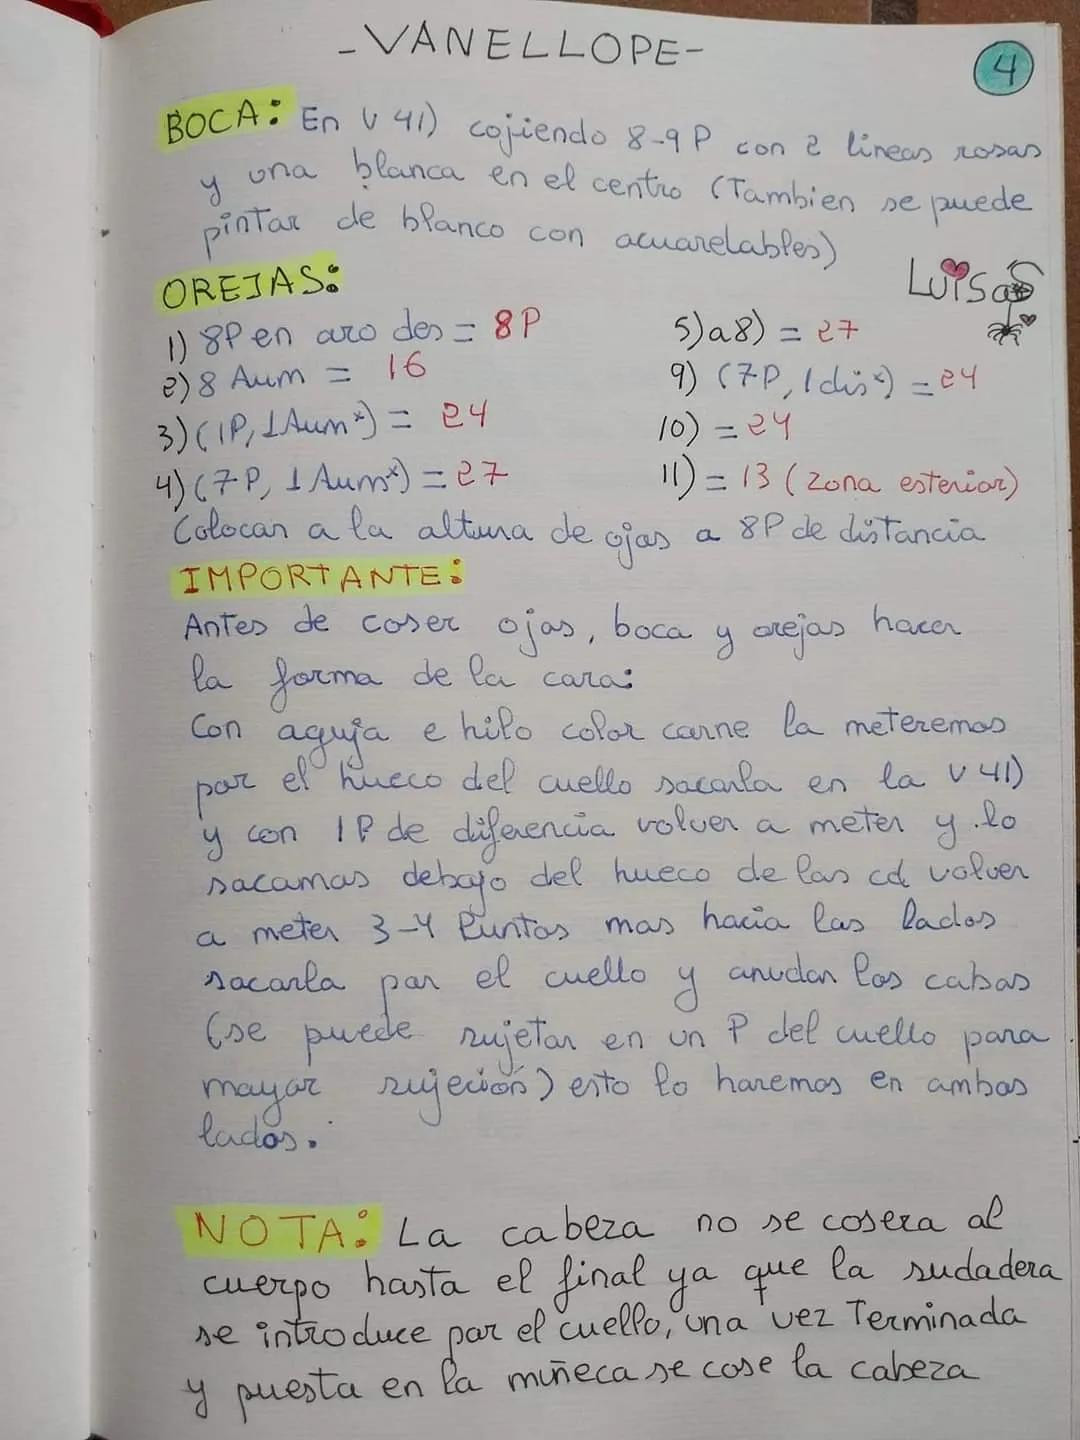 -VANELLOPE-
4
BOCA: En V 41) cojiendo 8-9 P con 2 lineas rosas
y una blanca en el centro (Tambien se puede
pintar de blanco con acuarelables)
LUISaS
OREJAS:
1) 8P en aro des = 8P
2) 8 Aum = 16
3) (1P, 1Aum*) = 24
4) (7P, 1 Aum*) = 27
5) a 8) = 27
9) (7P, 1dis*) = 24
10) = 24
11) = 13 (zona esterior)
Colocar a la altura de ojos a 8P de distancia
IMPORTANTE:
Antes de coser ojos, boca y orejas hacer
la forma de la cara:
Con aguja e hilo color carne la meteremos
por el hueco del cuello sacarla en la V 41)
y con 1P de diferencia volver a meter y lo
sacamos debajo del hueco de las cd volver
a meter 3-4 Puntos mas hacia los lados
sacarla por el cuello y anudar los cabos
(se puede sujetar en un P del cuello para
mayor sujecion) esto lo haremos en ambos
lados.
NOTA: La cabeza no se cosera al
cuerpo hasta el final ya que la sudadera
se introduce por el cuello, una vez Terminada
y puesta en la muñeca se cose la cabeza